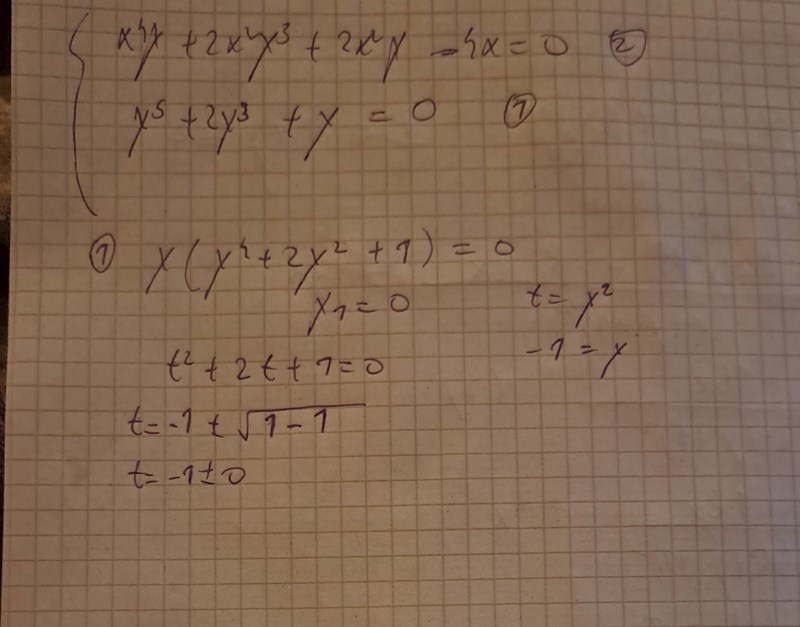 x⁴y + 2x²y³ + 2x²y - 4x = 0 ②
y⁵ + 2y³ + y = 0 ①
① y(y⁴ + 2y² + 1) = 0
y₁ = 0
t = y²
t² + 2t + 1 = 0
-1 = y
t = -1 ± √1 - 1
t = -1 ± 0